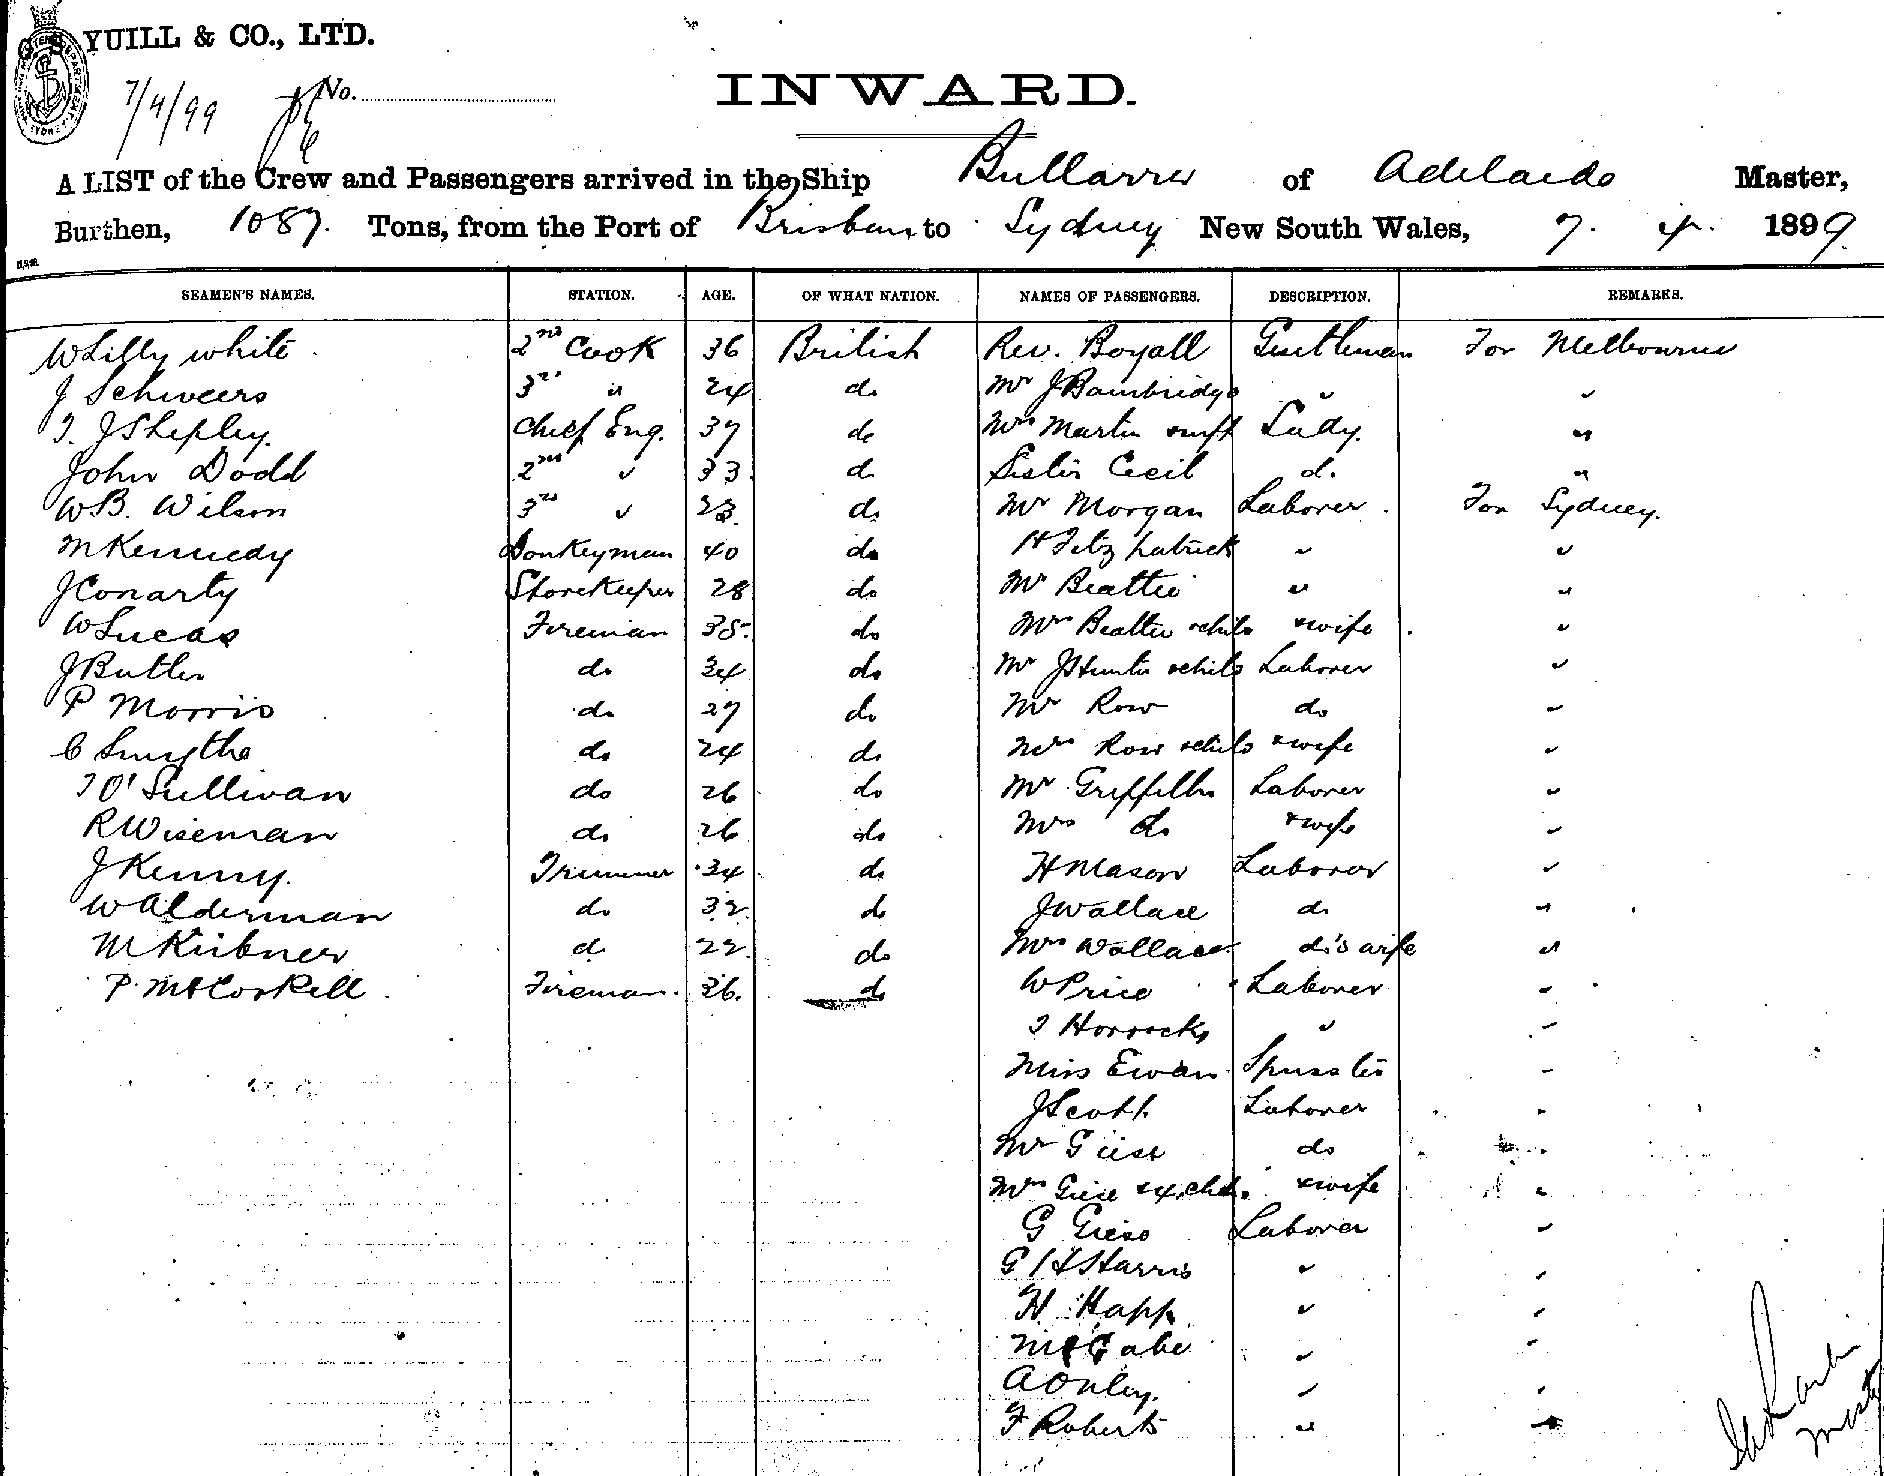 G S YUILL & CO., LTD.
7/4/99 No.
INWARD.
A LIST of the Crew and Passengers arrived in the Ship Bullarra of Adelaide Master,
Burthen, 1087. Tons, from the Port of Brisbane to Sydney New South Wales, 7. 4. 1899.
SEAMEN'S NAMES. STATION. AGE. OF WHAT NATION. NAMES OF PASSENGERS. DESCRIPTION. REMARKS.
W Lilly white 2nd Cook 36 British Rev. Boyall Gentleman For Melbourne
J Schweers 3rd " 24 do Mr J Bambridge " "
T. J Shepley. Chief Eng. 37 do Mrs Martin Lady. "
John Dodd 2nd " 33 do Sister Cecil do. "
W B. Wilson 3rd " 23. do Mr Morgan Laborer. For Sydney.
M Kennedy Donkeyman 40 do H Fitzpatrick " "
J Conarty Storekeeper 28 do Mr Beattie " "
W Lucas Fireman 35. do Mrs Beattie & child & wife "
J Butler do 34 do Mr J Hunter & child Laborer "
P Morris do 27 do Mr Row do "
C Smythe do 24 do Mrs Row & child & wife "
T O'Sullivan do 26 do Mr Griffiths Laborer "
R Wiseman do 26 do Mrs do & wife "
J Kenny. Trimmer 34 do H Mason Laborer "
W Alderman do 32 do J Wallace do "
M Kirbner do 22 do Mrs Wallace do's wife "
P. McCorkell. Fireman. 36. do W Price Laborer "
T Horrocks " "
Miss Ewan Spinster "
J Scott Laborer "
Mr Giese do "
Mrs Giese & 4 chd. & wife "
G Giese Laborer "
G H Harris " "
H Happ " "
McCabe " "
A Onley. " "
F Roberts " "
Master